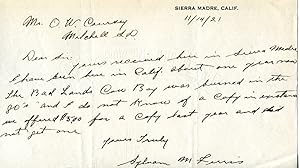 SIERRA MADRE, CALIF.
11/14/21
Mr. O W Coursey
Mitchell S.D.
Dear Sir. Yours received here in Sierra Madre
I have been here in Calif. about one year now
The Bad Lands Cow Boy was burned in the
80's and I do not know of a Copy in existance
we offered $500 for a Copy last year and did
not get one
Yours Truly
Sylvane M Ferris